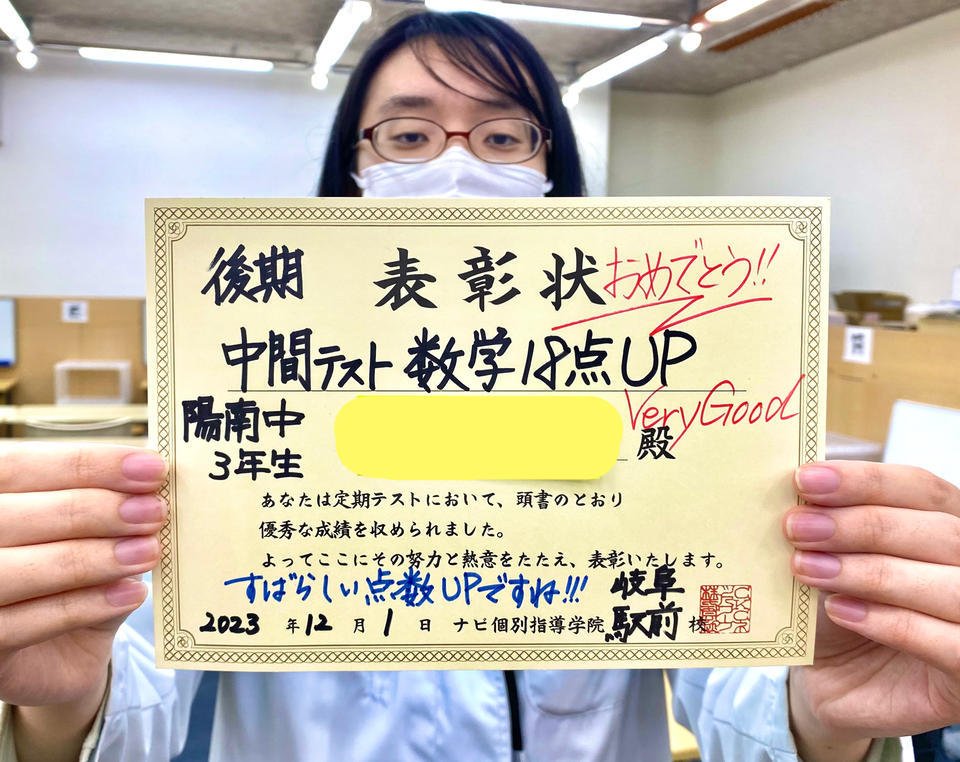 後期 表彰状 おめでとう!!
中間テスト 数学18点UP
Very Good
陽南中
3年生 殿
あなたは定期テストにおいて、頭書のとおり
優秀な成績を収められました。
よってここにその努力と熱意をたたえ、表彰いたします。
すばらしい点数UPですね!!!
2023年12月1日 ナビ個別指導学院 岐阜駅前校